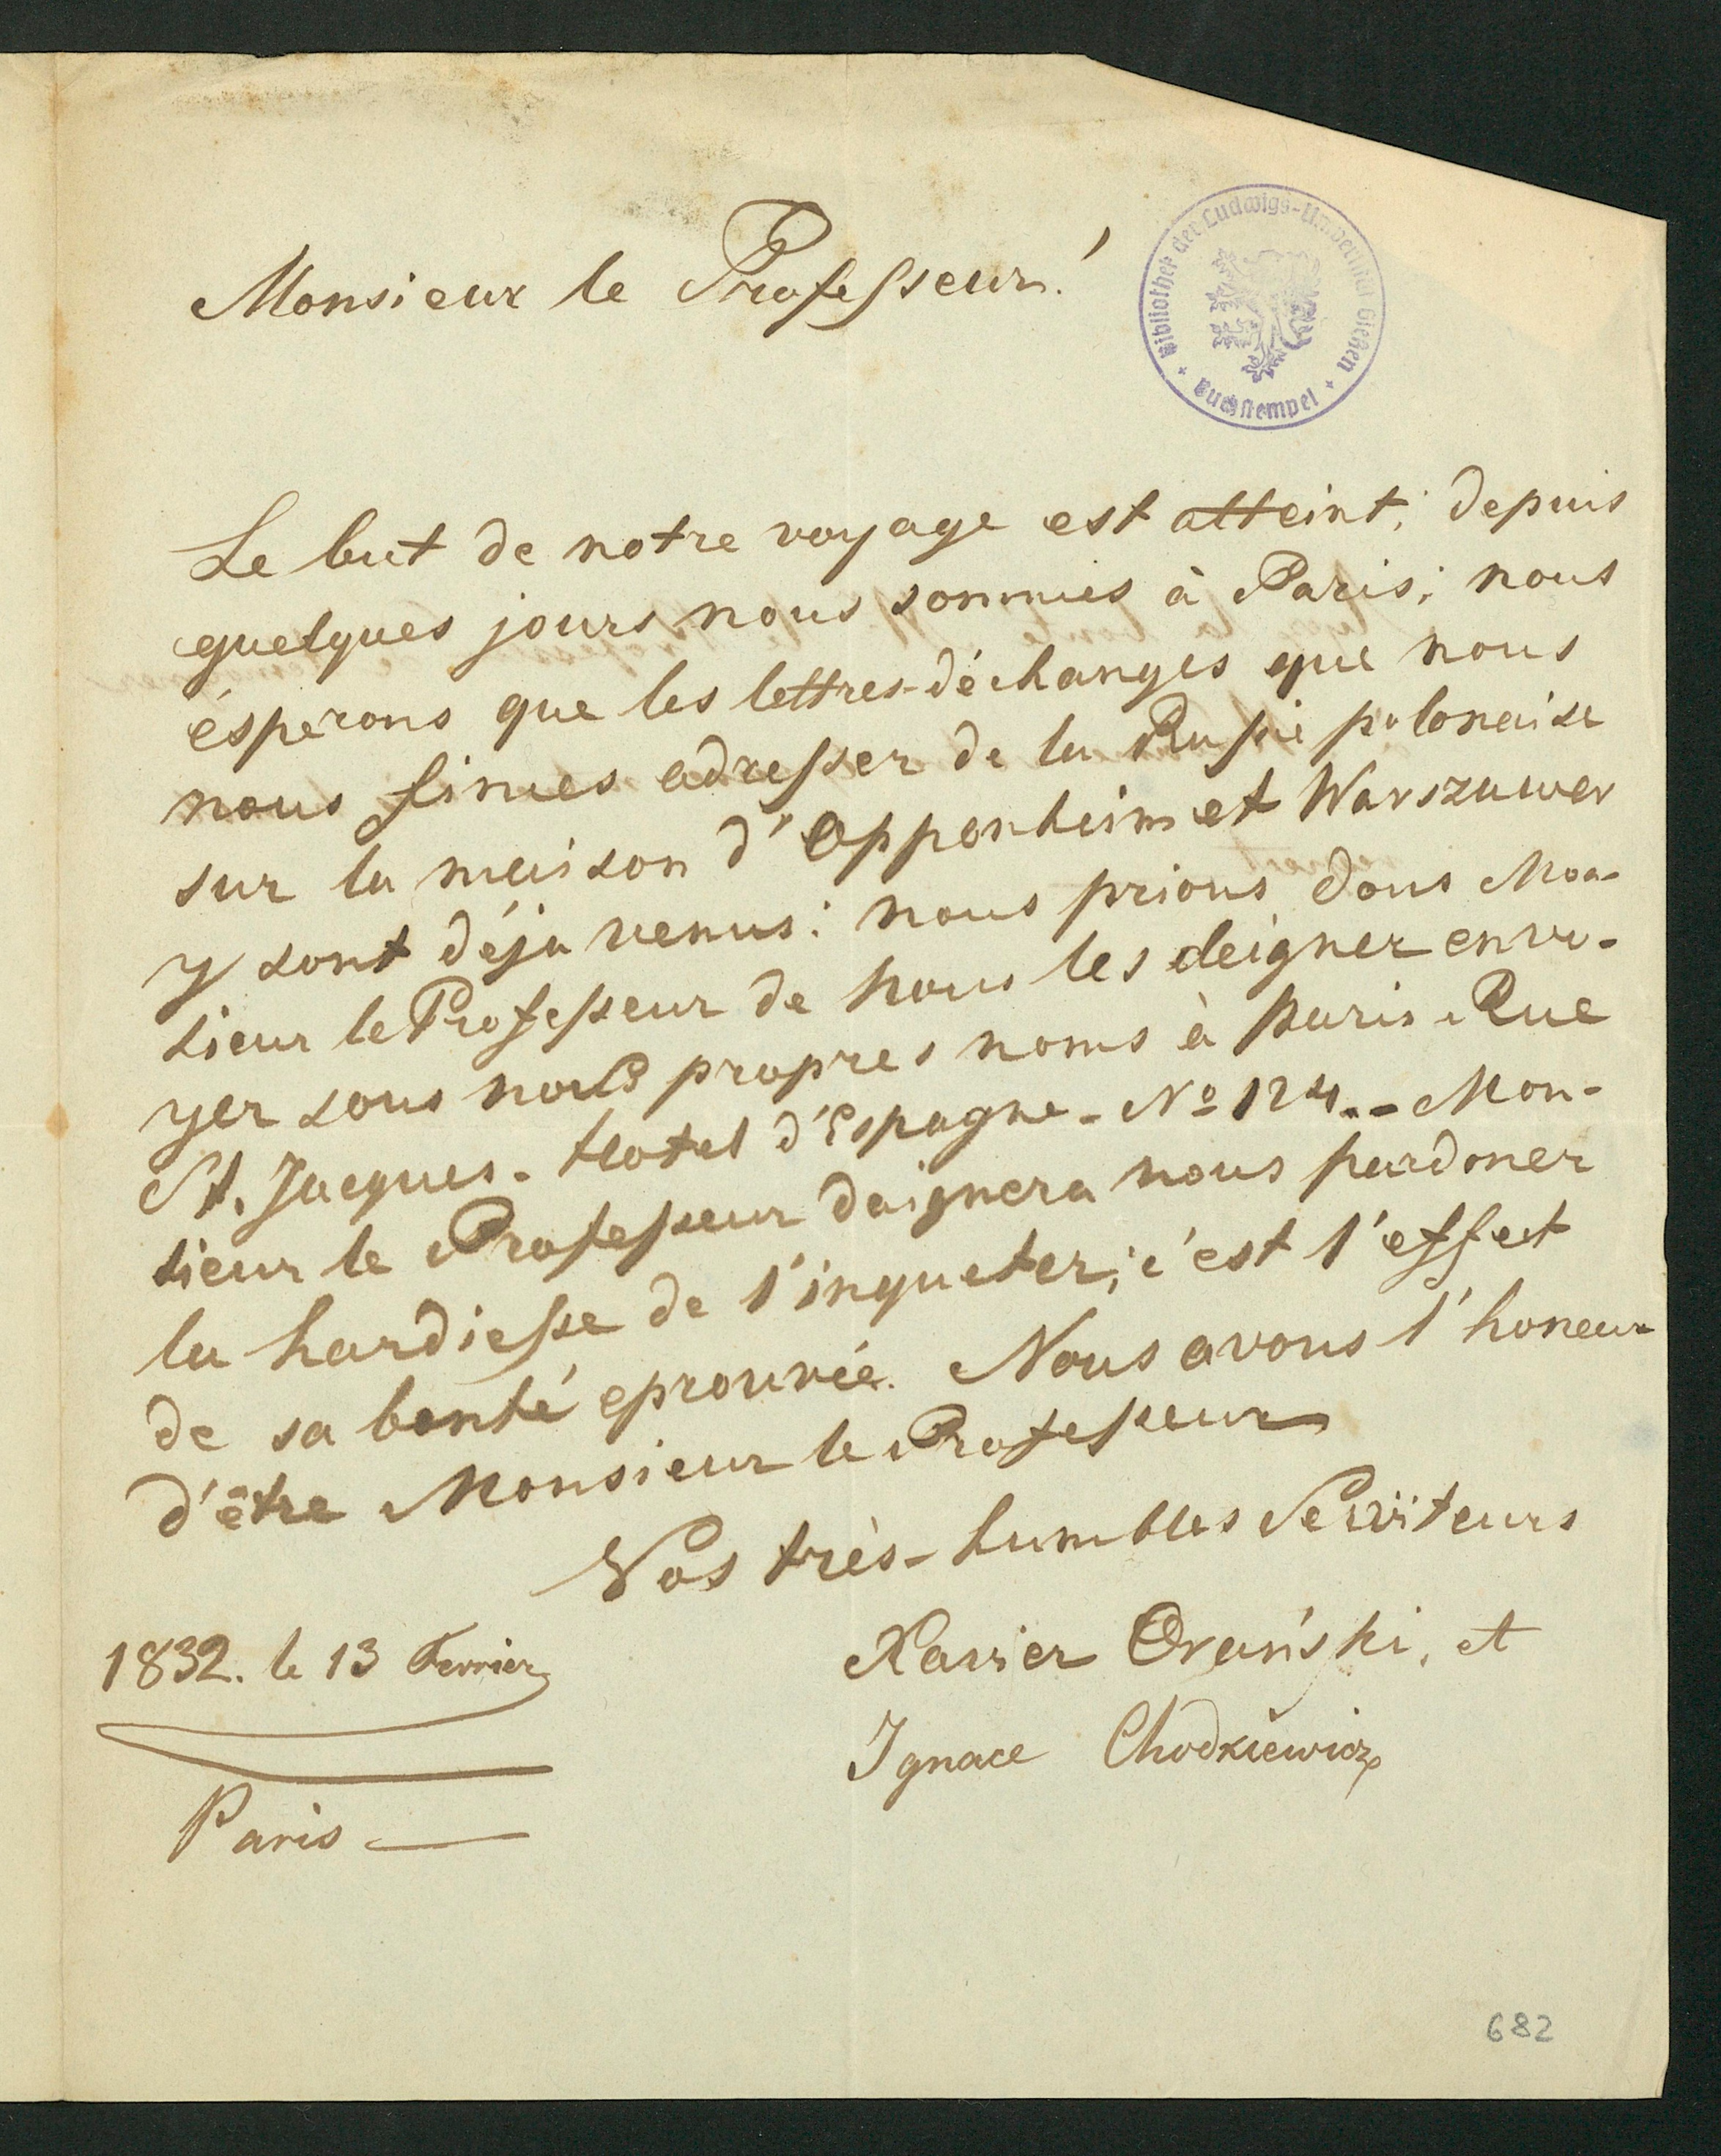 Monsieur le Professeur!
Bibliothek der Ludwigs-Universität Gießen
+ Buchstempel +
Le but de notre voyage est atteint; depuis
quelques jours nous sommes à Paris; nous
éspérons que les lettres-déchanges que nous
nous fimes adresser de la Russie polonaise
sur la maison d'Oppenheim et Warszawer
y sont déja venus: nous prions dons Mon-
sieur le Professeur de nous les deigner envo-
yer sous nous propres noms à Paris Rue
St. Jacques. Hotel d'Espagne - No 124. - Mon-
sieur le Professeur daignera nous pardoner
la hardiesse de l'inqueter; c'est l'effet
de sa bonté eprouvée. Nous avons l'honeur
d'être Monsieur le Professeur
Vos très-humbles Serviteurs
1832. le 13 Fevrier
Xavier Orański, et
Ignace Chodkiewicz
Paris
682